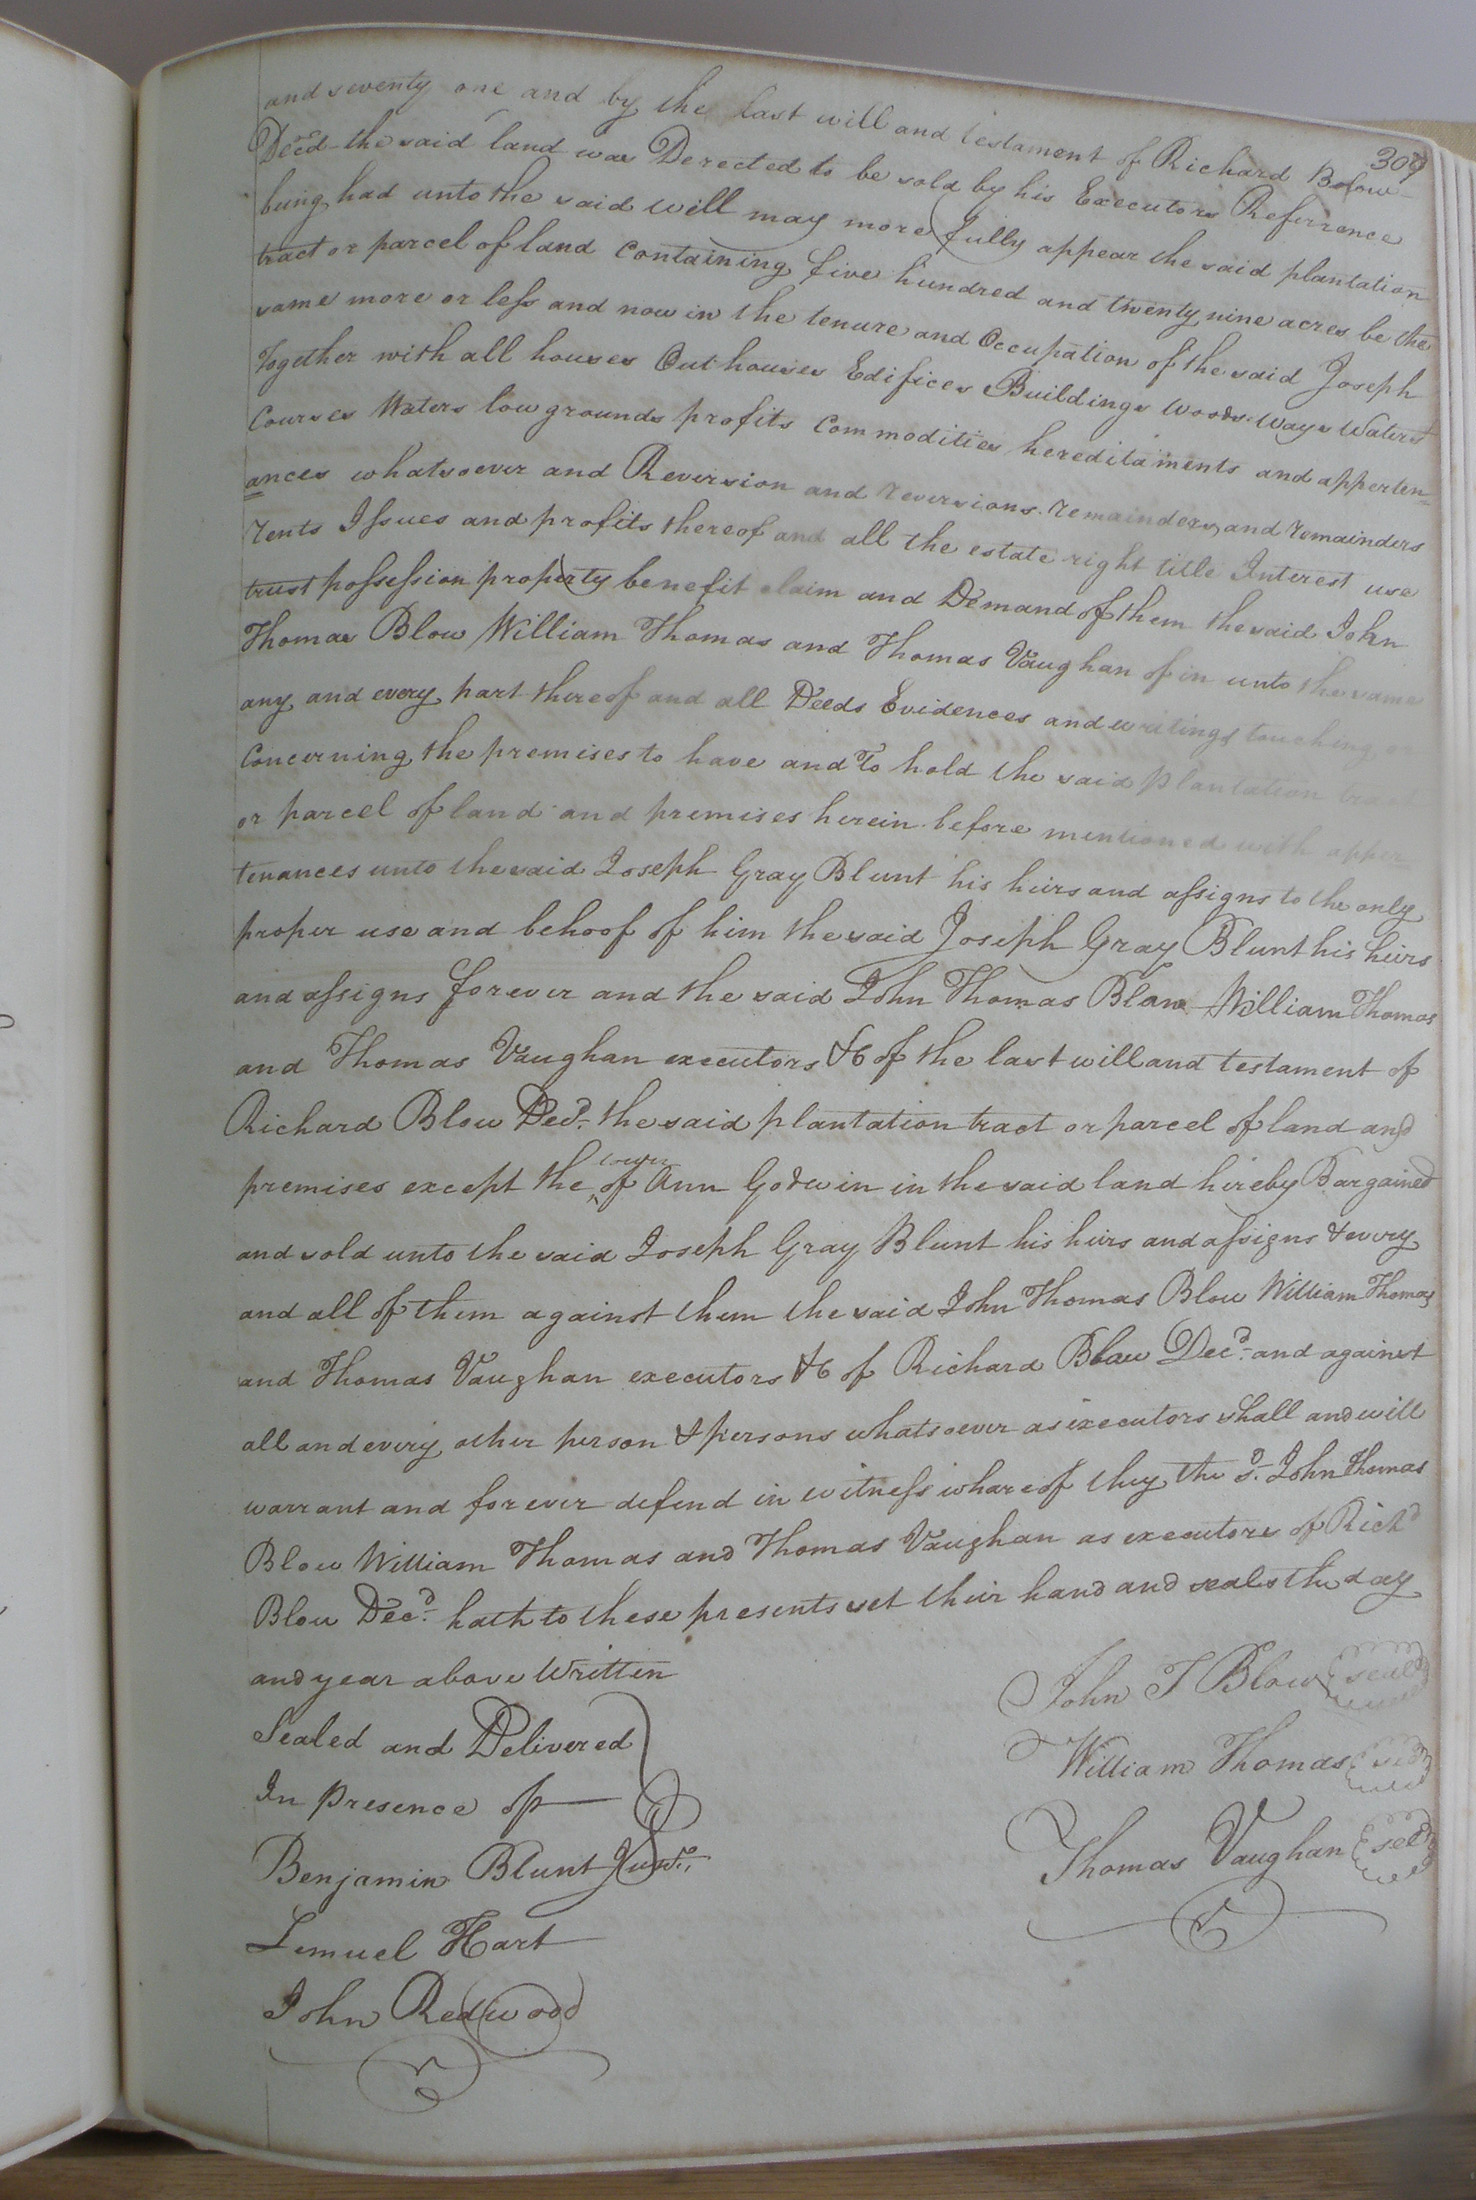 309
and seventy one and by the last will and testament of Richard Blow
Decd the said land was Derected to be sold by his Executors Referrence
being had unto the said will may more fully appear the said plantation
tract or parcel of land Containing five hundred and twenty nine acres be the
same more or less and now in the tenure and Occupation of the said Joseph
Together with all houses Out houses Edifices Buildings woods ways Waters
Courses Waters low grounds profits Commodities hereditaments and apperten=
ances whatsoever and Reversion and reversions remainders, and remainders
rents Issues and profits thereof and all the estate right title Interest use
trust possession property benefit claim and Demand of them the said John
Thomas Blow William Thomas and Thomas Vaughan of in unto the same
any and every part thereof and all Deeds Evidences and writings touching or
Concerning the premises to have and To hold the said plantation tract
or parcel of land and premises herein before mentioned with apper
tenances unto the said Joseph Gray Blunt his heirs and assigns to the only
proper use and behoof of him the said Joseph Gray Blunt his heirs
and assigns forever and the said John Thomas Blow William Thomas
and Thomas Vaughan executors &c of the last will and testament of
Richard Blow Decd. the said plantation tract or parcel of land and
premises except the of Ann Godwin in the said land hereby Bargained
and sold unto the said Joseph Gray Blunt his heirs and assigns & every
and all of them against them the said John Thomas Blow William Thomas
and Thomas Vaughan executors &c of Richard Blow Decd. and against
all and every other person & persons whatsoever as executors shall and will
warrant and forever defend in witness whareof they the sd. John Thomas
Blow William Thomas and Thomas Vaughan as executors of Richd
Blow Decd. hath to these presents set their hand and seals the day
and year above Written
Sealed and Delivered
In presence of
Benjamin Blunt Junr.
Lemuel Hart
John Redwood
John T Blow seal
William Thomas seal
Thomas Vaughan seal